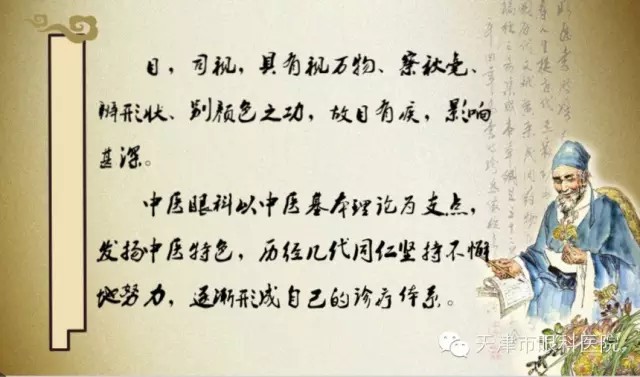 目，司视，具有视万物、察秋毫、
辨形状、别颜色之功，故目有疾，影响
甚深。
中医眼科以中医基本理论为支点，
发扬中医特色，历经几代同仁坚持不懈
地努力，逐渐形成自己的诊疗体系。
天津市眼科医院